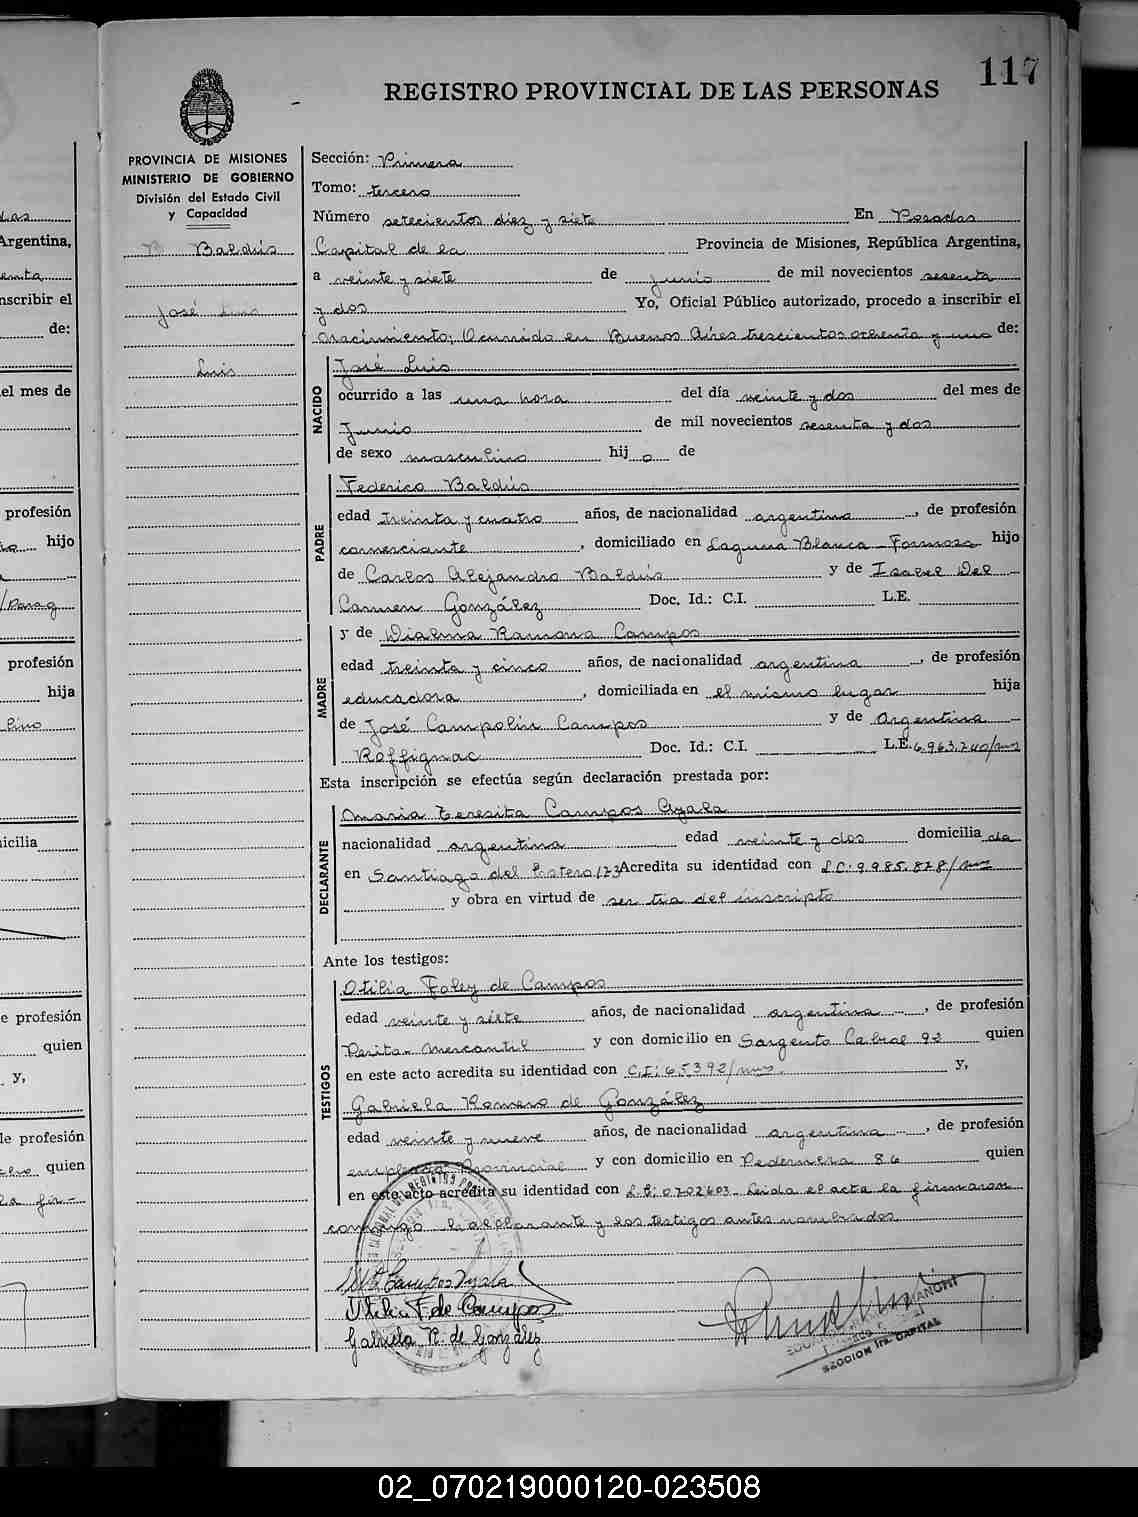 117
REGISTRO PROVINCIAL DE LAS PERSONAS
PROVINCIA DE MISIONES
MINISTERIO DE GOBIERNO
División del Estado Civil
y Capacidad
Baldús
José Luis
Luis
Sección: Primera
Tomo: tercero
Número setecientos diez y siete En Posadas
Capital de la Provincia de Misiones, República Argentina,
a veinte y siete de junio de mil novecientos sesenta
y dos Yo, Oficial Público autorizado, procedo a inscribir el
nacimiento; Ocurrido en Buenos Aires trescientos ochenta y uno de:
NACIDO
José Luis
ocurrido a las una hora del día veinte y dos del mes de
Junio de mil novecientos sesenta y dos
de sexo masculino hij o de
PADRE
Federico Baldús
edad treinta y cuatro años, de nacionalidad argentina, de profesión
comerciante, domiciliado en Laguna Blanca - Formosa hijo
de Carlos Alejandro Baldús y de Isabel Del
Carmen González Doc. Id.: C.I. L.E.
MADRE
y de Dialma Ramona Campos
edad treinta y cinco años, de nacionalidad argentina, de profesión
educadora, domiciliada en el mismo lugar hija
de José Campolin Campos y de Argentina
Roffignac Doc. Id.: C.I. L.E. 6.963.240/
Esta inscripción se efectúa según declaración prestada por:
DECLARANTE
Maria Teresita Campos Ayala
nacionalidad argentina edad veinte y dos domicilia da
en Santiago del Estero 173 Acredita su identidad con L.C. 9.985.878/
y obra en virtud de ser tia del inscripto
Ante los testigos:
TESTIGOS
Otilia Foley de Campos
edad veinte y siete años, de nacionalidad argentina, de profesión
Perito Mercantil y con domicilio en Sargento Cabral 92 quien
en este acto acredita su identidad con C.I: 65392/ y,
Gabriela Romero de González
edad veinte y nueve años, de nacionalidad argentina, de profesión
empleada Provincial y con domicilio en Pedernera 86 quien
en este acto acredita su identidad con 0702603 - Leida el acta la firmaron
conmigo la declarante y los testigos antes nombrados
Campos Ayala
Otilia F. de Campos
Gabriela R. de González
SECCION 1ra. CAPITAL
Argentina,
nscribir el
de:
el mes de
profesión
hijo
profesión
hija
icilia
e profesión
quien
y,
de profesión
quien
02_070219000120-023508